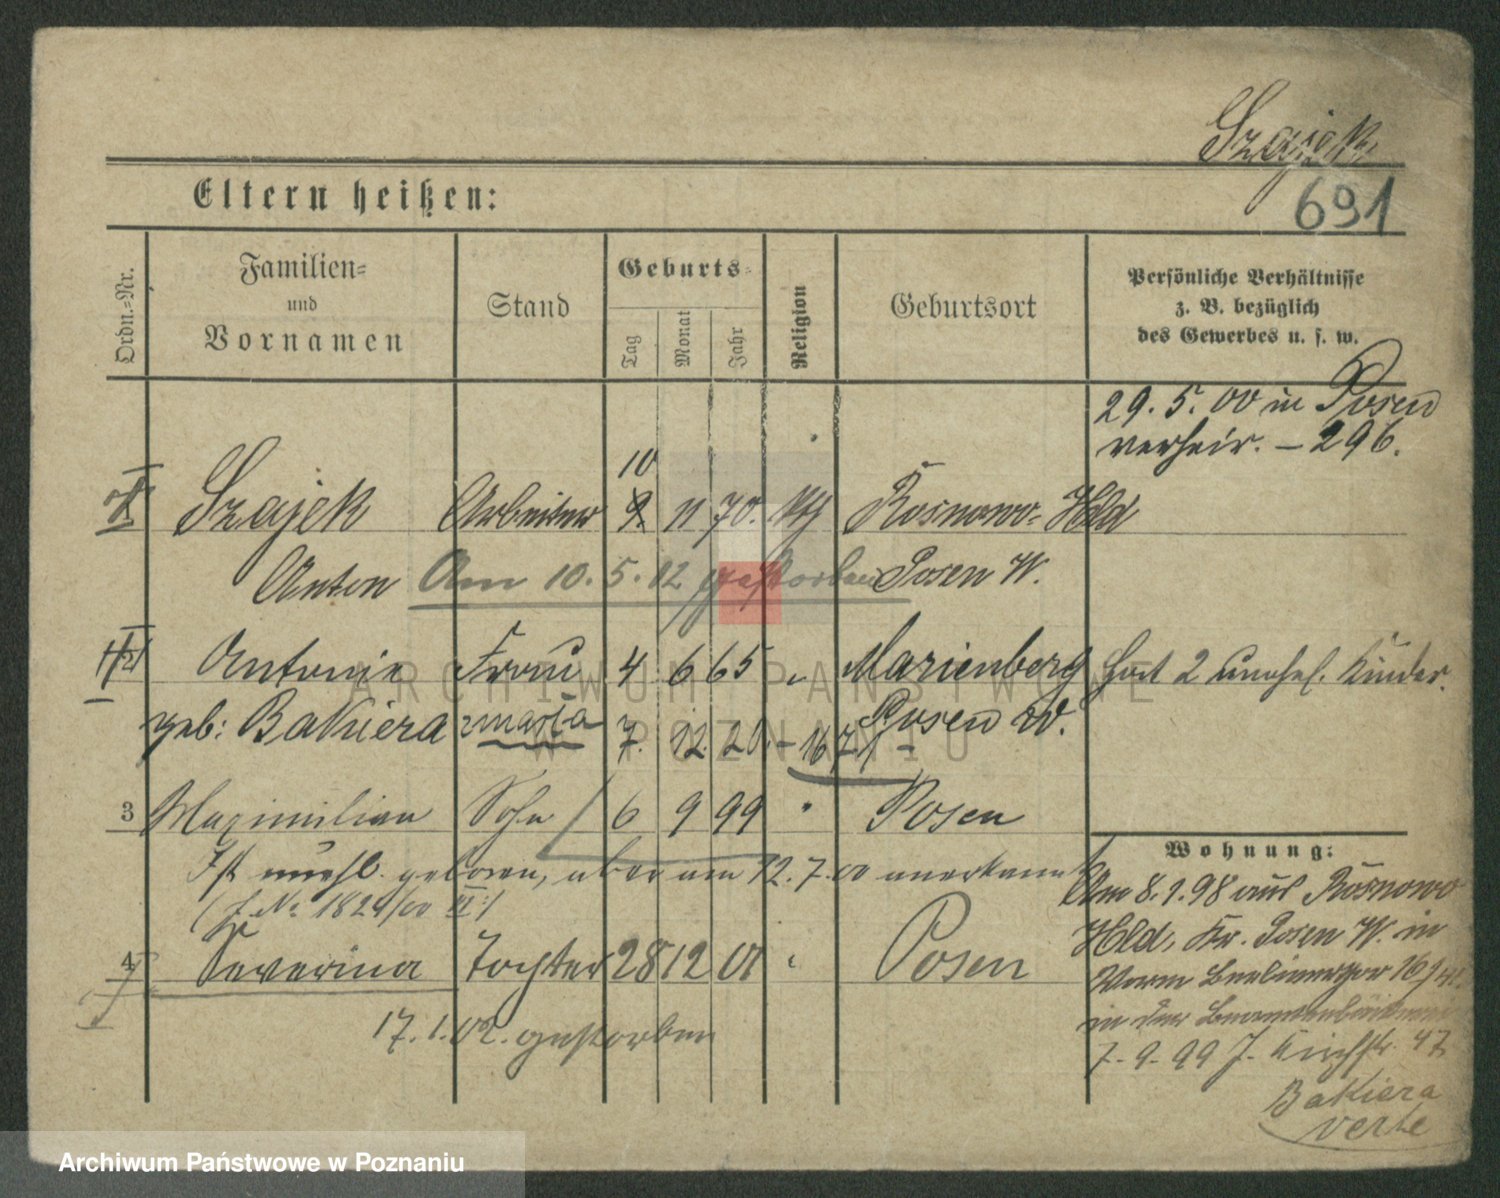 Szajek
691
Eltern heißen:
Ordn.-Nr.
Familien-
und
Vornamen
Stand
Geburts-
Tag
Monat
Jahr
Religion
Geburtsort
Persönliche Verhältnisse
z. B. bezüglich
des Gewerbes u. s. w.
29. 5. 00 in Posen
verheir. – 296.
10
Szajek Arbeiter 9. 11 70. Rosnowo- Hld
Anton Am 10. 5. 02 gestorben Posen W.
Antonie Frau 4 6 65 " Marienberg Hat 2 unehel. Kinder.
geb: Bakiera Posen W.
7. 12. 20. – 1671
3 Maximilian Sohn 6 9 99 " Posen
Ist unehl. geboren, aber am 12. 7. 00 anerkannt
4 Severina Tochter 28 12 01 " Posen
17. 1. 02. gestorben
Wohnung:
Am 8. 1. 98 aus Rosnowo
Hld, Kr. Posen W. in
in der
7. 9. 99 J. Kirchstr. 47
Bakiera
verte
ARCHIWUM PAŃSTWOWE
W POZNANIU
Archiwum Państwowe w Poznaniu